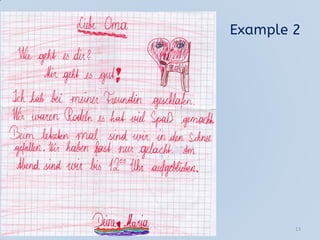 Liebe Oma
Example 2
Wie geht es dir?
Mir geht es gut!
Ich hab bei meiner Freundin geschlafen.
Wir waren Rodeln es hat viel Spaß gemacht
Beim letzten mal sind wir in den Schnee
gefallen. Wir haben fast nur gelacht. Am
Abend sind wir bis 12⁰⁰ Uhr aufgeblieben.
Deine Maria
13